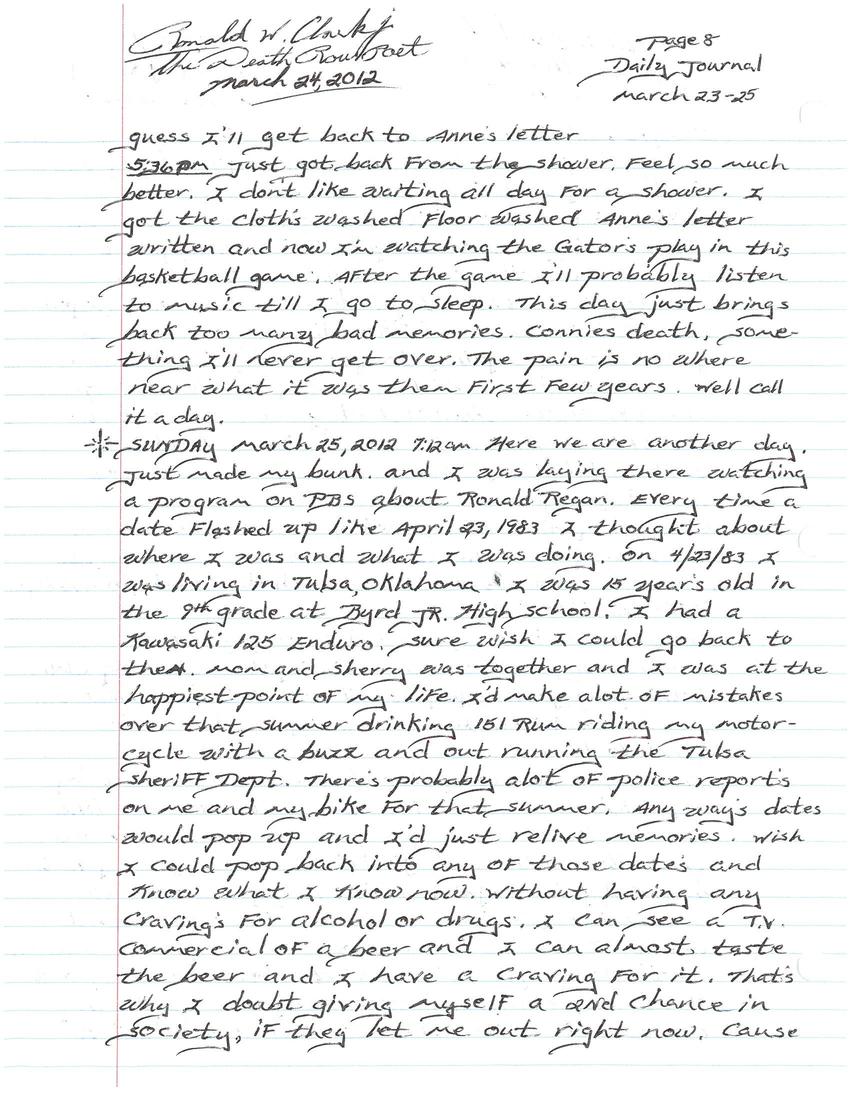 Ronald W. Clark jr
The Death Row Poet
March 24, 2012
Page 8
Daily Journal
March 23-25
guess I'll get back to Anne's letter
5:36pm Just got back From the shower. Feel so much
better. I don't like waiting all day For a shower. I
got the cloths washed Floor washed Anne's letter
written and now I'm watching the Gator's play in this
basketball game. AFter the game I'll probably listen
to music till I go to sleep. This day just brings
back too many bad memories. Connies death, some-
thing I'll never get over. The pain is no where
near what it was them First Few years. Well call
it a day.
SUNDAY March 25, 2012 7:12am Here we are another day.
Just made my bunk. and I was laying there watching
a program on PBS about Ronald Regan. Every time a
date Flashed up like April 23, 1983 I thought about
where I was and what I was doing. On 4/23/83 I
was living in Tulsa, Oklahoma I was 15 year's old in
the 9th grade at Byrd JR. High school. I had a
Kawasaki 125 Enduro. Sure wish I could go back to
then. Mom and Sherry was together and I was at the
happiest point of my life. I'd make alot of mistakes
over that summer drinking 151 Rum riding my motor-
cycle with a buzz and out running the Tulsa
Sheriff Dept. There's probably alot of police report's
on me and my bike For that summer. Any way's dates
would pop up and I'd just relive memories. Wish
I could pop back into any of those date's and
Know what I know now. Without having any
Craving's For alcohol or drugs. I can see a T.V.
Commercial of a beer and I can almost taste
the beer and I have a Craving For it. That's
why I doubt giving myself a 2nd Chance in
society, if they let me out right now. Cause